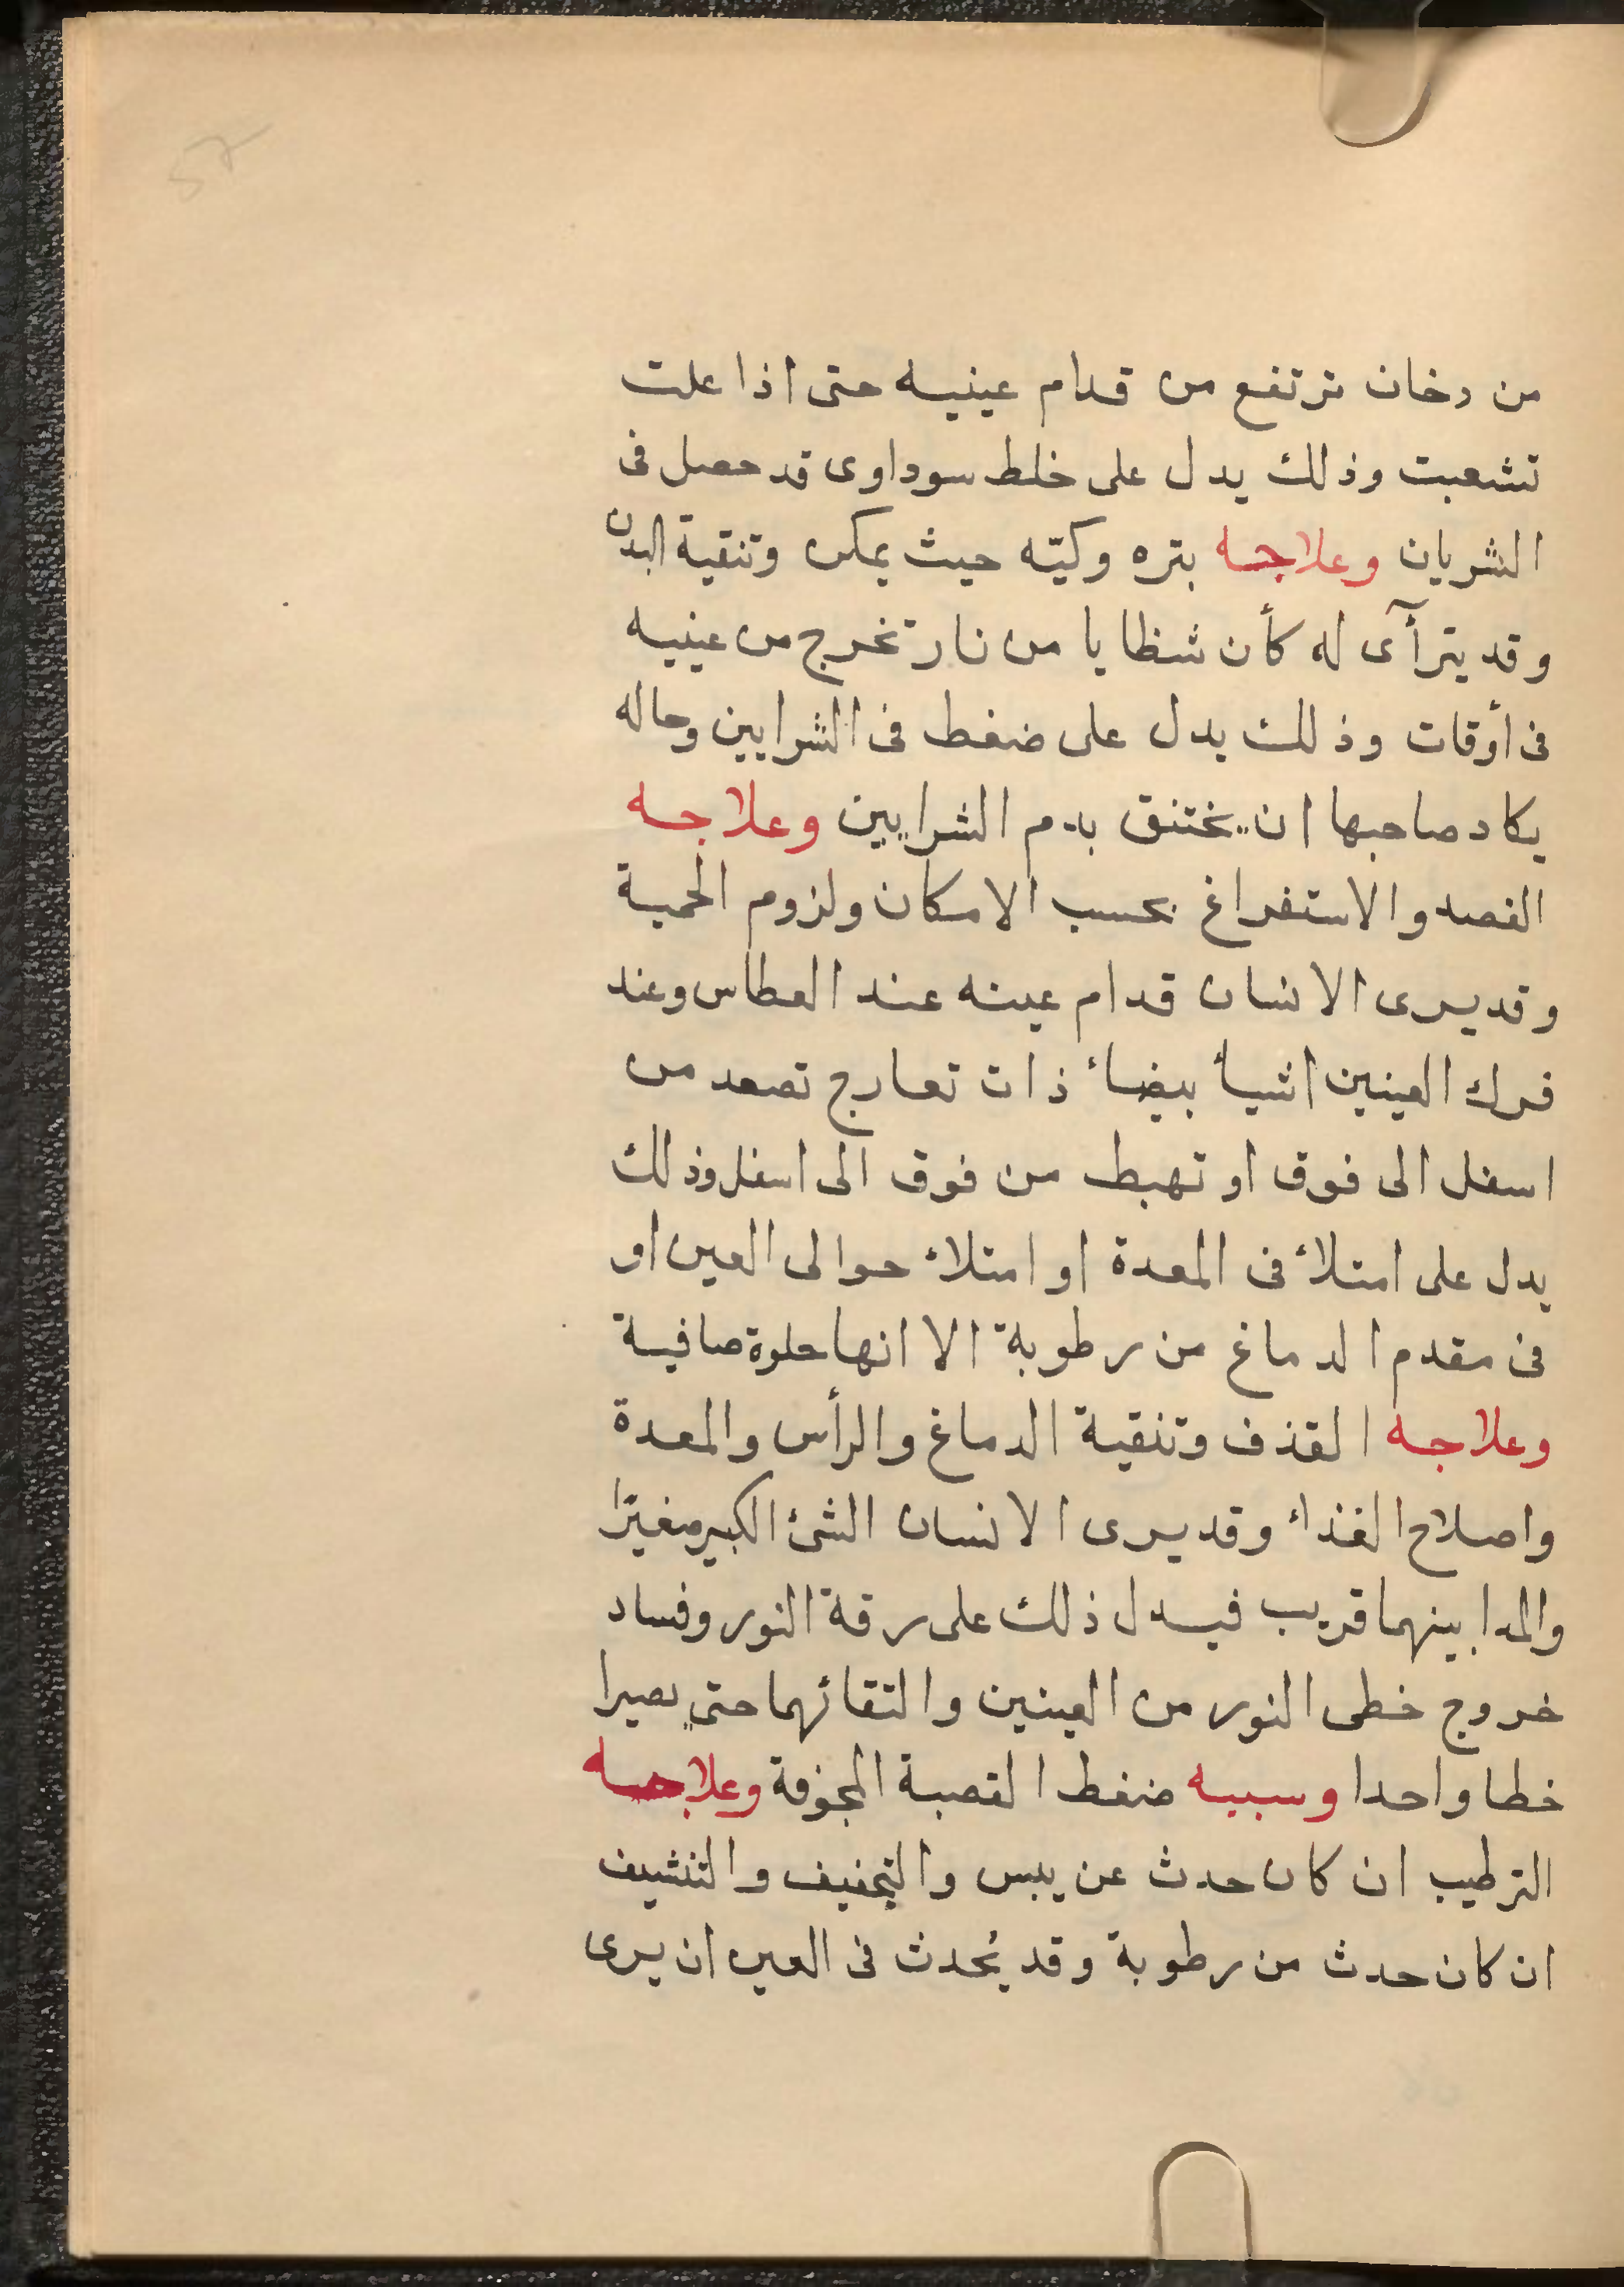 57
من دخان ترتفع من قدام عينيه حتى اذا علت
تشعبت وذلك يدل على خلط سوداوى قد حصل فى
الشريان وعلاجه بتره وكيّه حيث يمكن وتنقية البدن
وقد يترآأى له كأن شظايا من نار تخرج من عينيه
فى أوقات وذلك يدل على ضغط فى الشرايين وحاله
يكاد صاحبها ان يختنق بدم الشرايين وعلاجه
الفصد والاستفراغ بحسب الامكان ولزوم الحمية
وقد يرى الانسان قدام عينه عند العطاس وعند
فرك العينين اشيأ بيضأ ذات تعارج تصعد من
اسفل الى فوق او تهبط من فوق الى اسفل وذلك
يدل على امتلأ فى المعدة او امتلأ حوالى العين او
فى مقدم الدماغ من رطوبة الا انها حلوة صافية
وعلاجه القذف وتنقية الدماغ والرأس والمعدة
واصلاح الغذاء وقد يرى الانسان الشئ الكبير صغيرًا
والمدا بينهما قريب فيدل ذلك على رقة النور وفساد
خروج خطى النور من العينين والتقائهما حتى يصيرا
خطا واحدا وسببه ضغط القصبة المجوفة وعلاجه
الترطيب ان كان حدث عن يبس والتجفيف والتنشيف
ان كان حدث من رطوبة وقد يُحدث فى العين ان يرى